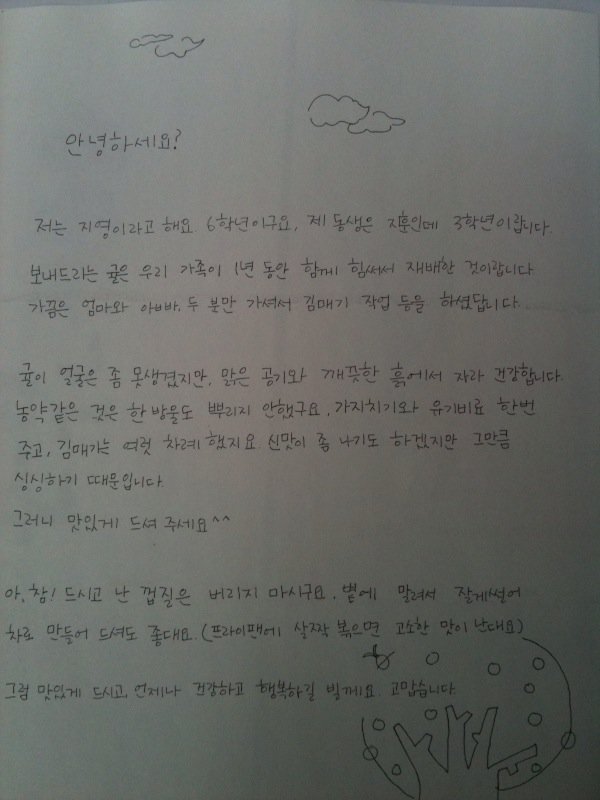 안녕하세요?
저는 지영이라고 해요. 6학년이구요, 제 동생은 지훈인데 3학년이랍니다.
보내드리는 귤은 우리 가족이 1년 동안 함께 힘써서 재배한 것이랍니다
가끔은 엄마와 아빠, 두 분만 가셔서 김매기 작업 등을 하셨답니다.
귤이 얼굴은 좀 못생겼지만, 맑은 공기와 깨끗한 흙에서 자라 건강합니다.
농약같은 것은 한 방울도 뿌리지 안했구요, 가지치기와 유기비료 한번
주고, 김매기는 여럿 차례 했지요. 신맛이 좀 나기도 하겠지만 그만큼
싱싱하기 때문입니다.
그러니 맛있게 드셔 주세요^^
아, 참! 드시고 난 껍질은 버리지 마시구요, 볕에 말려서 잘게썰어
차로 만들어 드셔도 좋대요. (프라이팬에 살짝 볶으면 고소한 맛이 난대요)
그럼 맛있게 드시고, 언제나 건강하고 행복하길 빌께요. 고맙습니다.